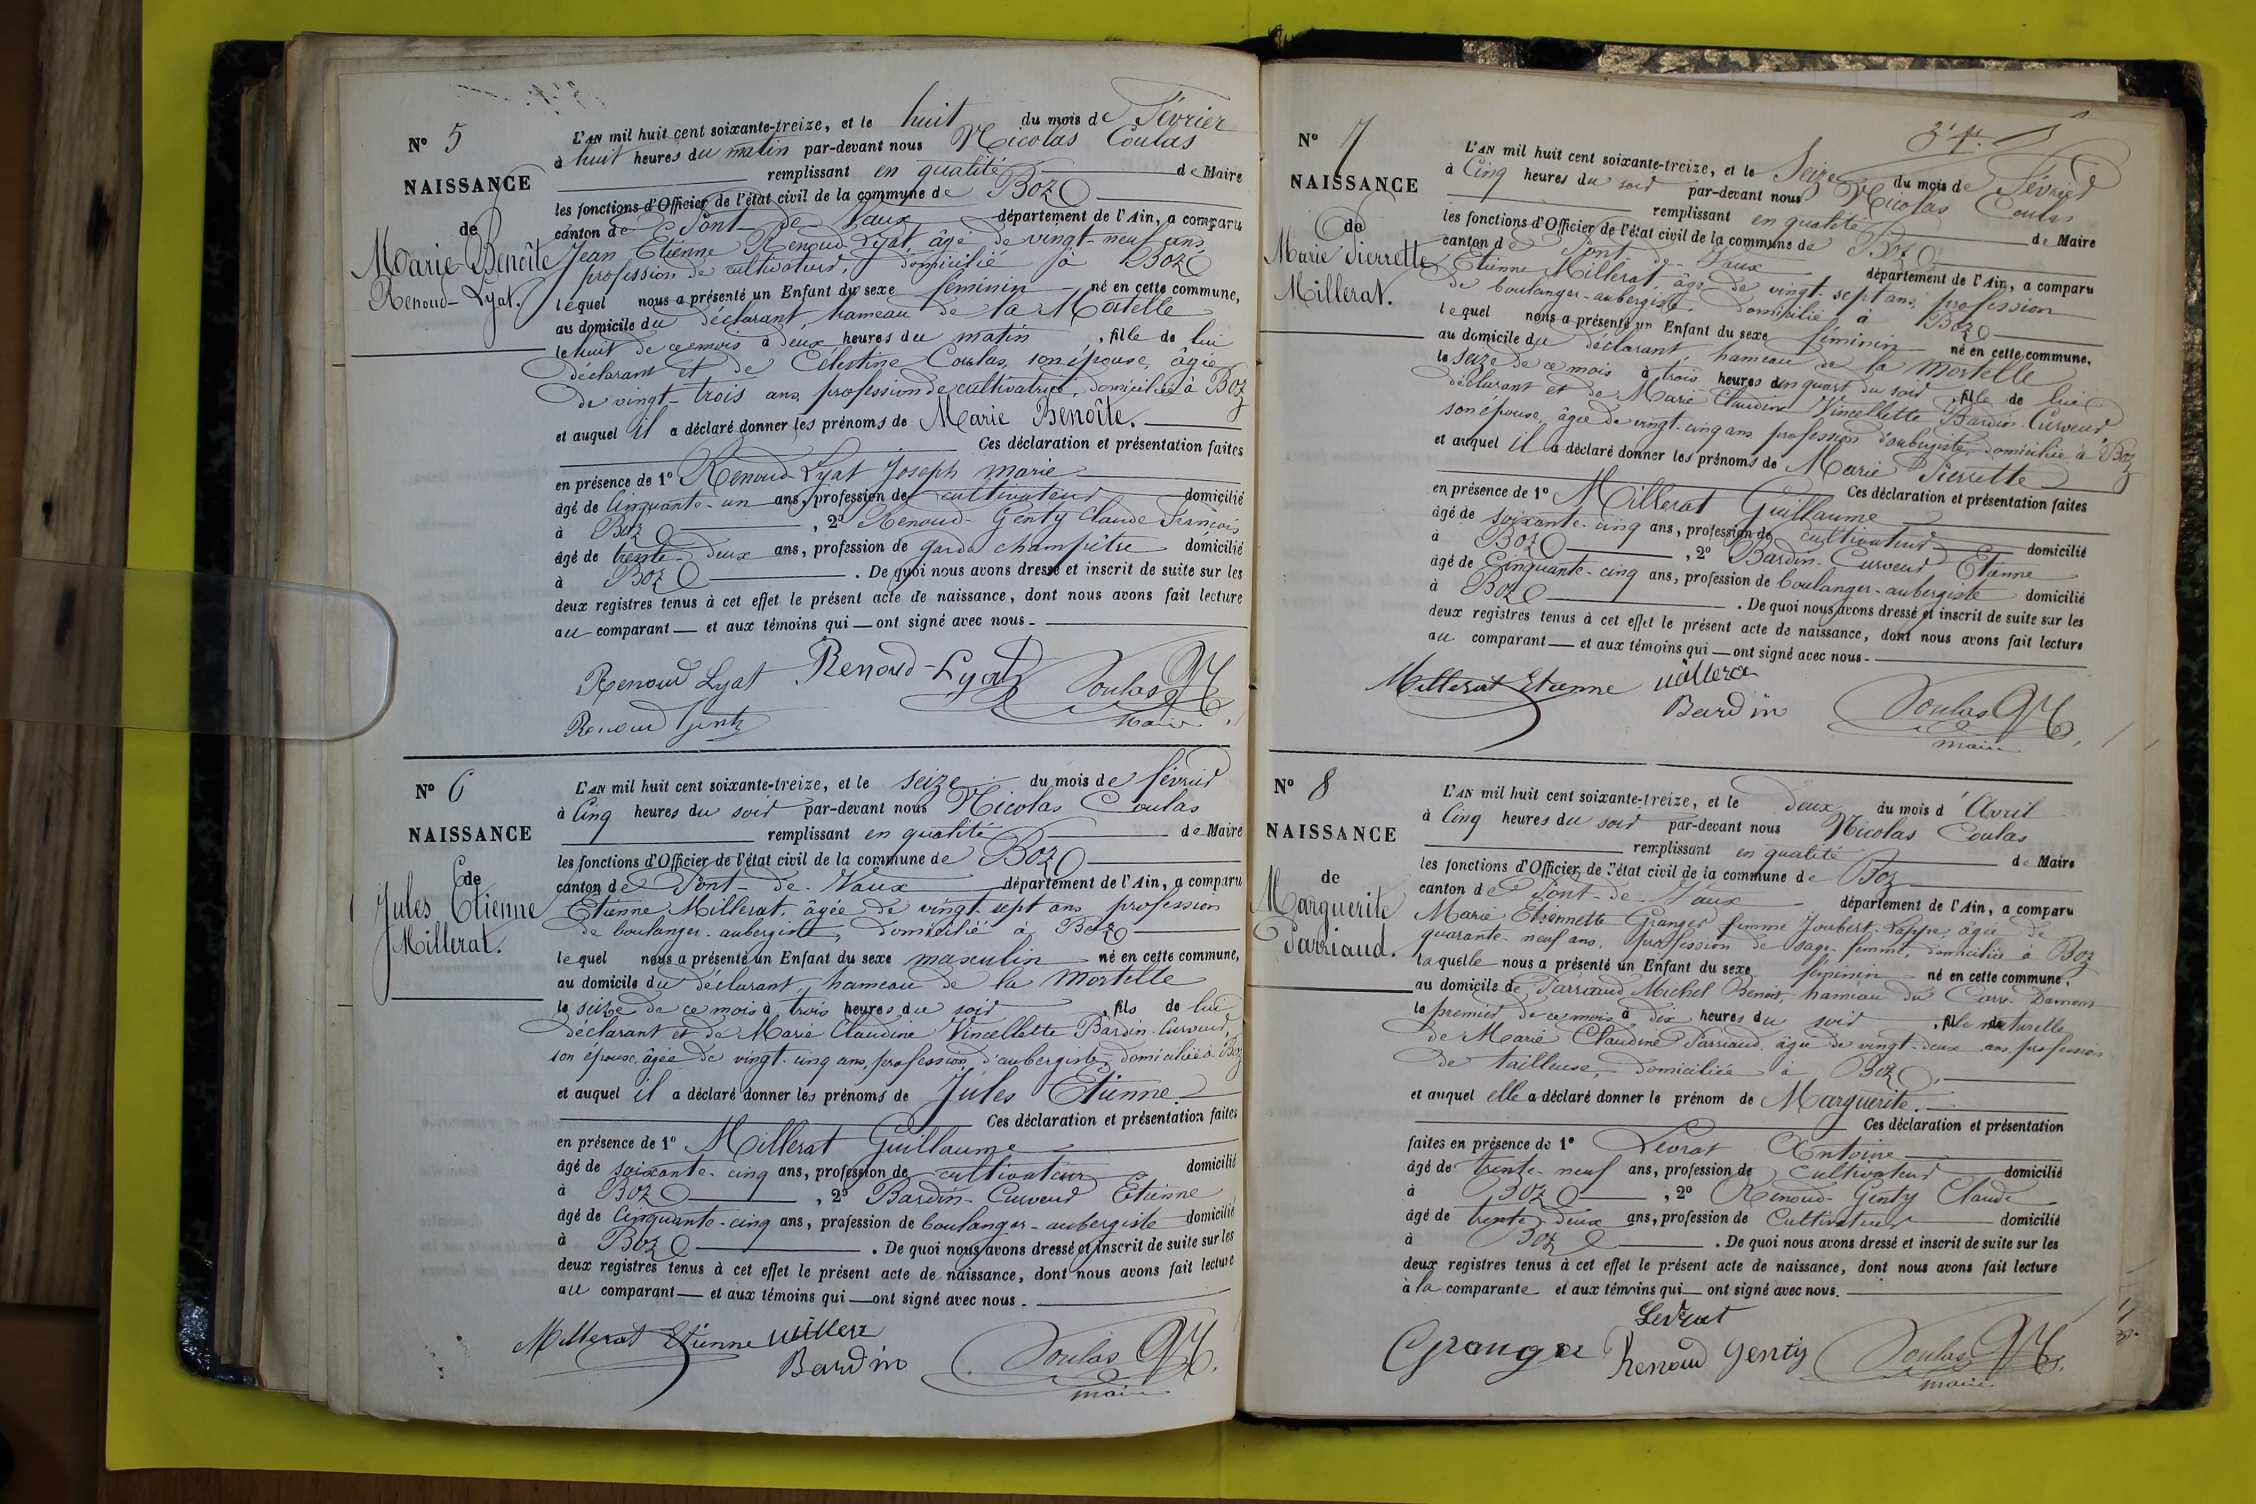 N° 5
NAISSANCE
de
Marie Benoîte
Renoud-Lyat.
L'AN mil huit cent soixante-treize, et le huit du mois de Février
à huit heures du matin par-devant nous Nicolas Coulas
remplissant en qualité de Maire
les fonctions d'Officier de l'état civil de la commune de Boz
canton de Pont-de-Vaux département de l'Ain, a comparu
Jean Etienne Renoud-Lyat, âgé de vingt-neuf ans,
profession de cultivateur, domicilié à Boz
lequel nous a présenté un Enfant du sexe féminin né en cette commune,
au domicile du déclarant, hameau de la Mortelle
le huit de ce mois à deux heures du matin, fille de lui
déclarant et de Célestine Coulas, son épouse, âgée
de vingt-trois ans, profession de cultivatrice, domiciliée à Boz
et auquel il a déclaré donner les prénoms de Marie Benoîte.
Ces déclaration et présentation faites
en présence de 1° Renoud Lyat Joseph Marie
âgé de Cinquante-un ans, profession de cultivateur domicilié
à Boz, 2° Renoud-Genty Claude François
âgé de trente-deux ans, profession de garde champêtre domicilié
à Boz. De quoi nous avons dressé et inscrit de suite sur les
deux registres tenus à cet effet le présent acte de naissance, dont nous avons fait lecture
au comparant et aux témoins qui ont signé avec nous.
Renoud Lyat Renoud-Lyat Coulas N
Renoud Genty Maire
N° 6
NAISSANCE
de
Jules Etienne
Millerat.
L'AN mil huit cent soixante-treize, et le seize du mois de février
à Cinq heures du soir par-devant nous Nicolas Coulas
remplissant en qualité de Maire
les fonctions d'Officier de l'état civil de la commune de Boz
canton de Pont-de-Vaux département de l'Ain, a comparu
Etienne Millerat, âgée de vingt-sept ans profession
de boulanger-aubergiste, domicilié à Boz
lequel nous a présenté un Enfant du sexe masculin né en cette commune,
au domicile du déclarant, hameau de la Mortelle
le seize de ce mois à trois heures du soir, fils de lui
déclarant et de Marie Claudine Vincellette Bardin-Curveur,
son épouse, âgée de vingt-cinq ans, profession d'aubergiste domiciliée à Boz
et auquel il a déclaré donner les prénoms de Jules Etienne.
Ces déclaration et présentation faites
en présence de 1° Millerat Guillaume
âgé de soixante-cinq ans, profession de cultivateur domicilié
à Boz, 2° Bardin-Curveur Etienne
âgé de Cinquante-cinq ans, profession de boulanger-aubergiste domicilié
à Boz. De quoi nous avons dressé et inscrit de suite sur les
deux registres tenus à cet effet le présent acte de naissance, dont nous avons fait lecture
au comparant et aux témoins qui ont signé avec nous.
Millerat Etienne
Bardin Coulas N
maire
N° 7
NAISSANCE
de
Marie Pierrette
Millerat.
L'AN mil huit cent soixante-treize, et le Seize du mois de Février
à Cinq heures du soir par-devant nous Nicolas Coulas
remplissant en qualité de Maire
les fonctions d'Officier de l'état civil de la commune de Boz
canton de Pont-de-Vaux département de l'Ain, a comparu
Etienne Millerat, âgé de vingt-sept ans, profession
de boulanger-aubergiste, domicilié à Boz
lequel nous a présenté un Enfant du sexe féminin né en cette commune,
au domicile du déclarant, hameau de la Mortelle
le seize de ce mois à trois heures un quart du soir, fille de lui
déclarant et de Marie Claudine Vincellette Bardin-Curveur,
son épouse, âgée de vingt-cinq ans profession d'aubergiste, domiciliée à Boz
et auquel il a déclaré donner les prénoms de Marie Pierrette
Ces déclaration et présentation faites
en présence de 1° Millerat Guillaume
âgé de soixante-cinq ans, profession de cultivateur domicilié
à Boz, 2° Bardin-Curveur Etienne
âgé de Cinquante-cinq ans, profession de boulanger-aubergiste domicilié
à Boz. De quoi nous avons dressé et inscrit de suite sur les
deux registres tenus à cet effet le présent acte de naissance, dont nous avons fait lecture
au comparant et aux témoins qui ont signé avec nous.
Millerat Etienne
Bardin Coulas N
maire
N° 8
NAISSANCE
de
Marguerite
Parriaud.
L'AN mil huit cent soixante-treize, et le deux du mois d'Avril
à Cinq heures du soir par-devant nous Nicolas Coulas
remplissant en qualité de Maire
les fonctions d'Officier de l'état civil de la commune de Boz
canton de Pont-de-Vaux département de l'Ain, a comparu
Marie Etiennette Granger femme Joubert-Lappe, âgée de
quarante-neuf ans, profession de sage-femme, domiciliée à Boz
laquelle nous a présenté un Enfant du sexe féminin né en cette commune,
au domicile de Parriaud Michel Benoit, hameau du Carre Damont
le premier de ce mois à dix heures du soir, fille naturelle
de Marie Claudine Parriaud âgée de vingt-deux ans, profession
de tailleuse, domiciliée à Boz.
et auquel elle a déclaré donner le prénom de Marguerite.
Ces déclaration et présentation
faites en présence de 1° Levrat Antoine
âgé de trente-neuf ans, profession de Cultivateur domicilié
à Boz, 2° Renoud-Genty Claude
âgé de trente-deux ans, profession de Cultivateur domicilié
à Boz. De quoi nous avons dressé et inscrit de suite sur les
deux registres tenus à cet effet le présent acte de naissance, dont nous avons fait lecture
à la comparante et aux témoins qui ont signé avec nous.
Levrat
Granger Renoud Genty Coulas N
maire